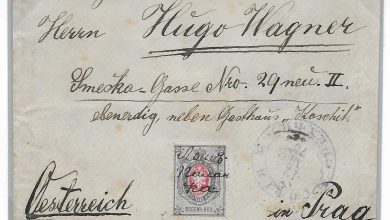 Herrn Hugo Wagner
Smeska-Gasse Nro. 29 neu. II.
ebenerdig, neben Gasthaus „Koschik"
Oesterreich in Prag